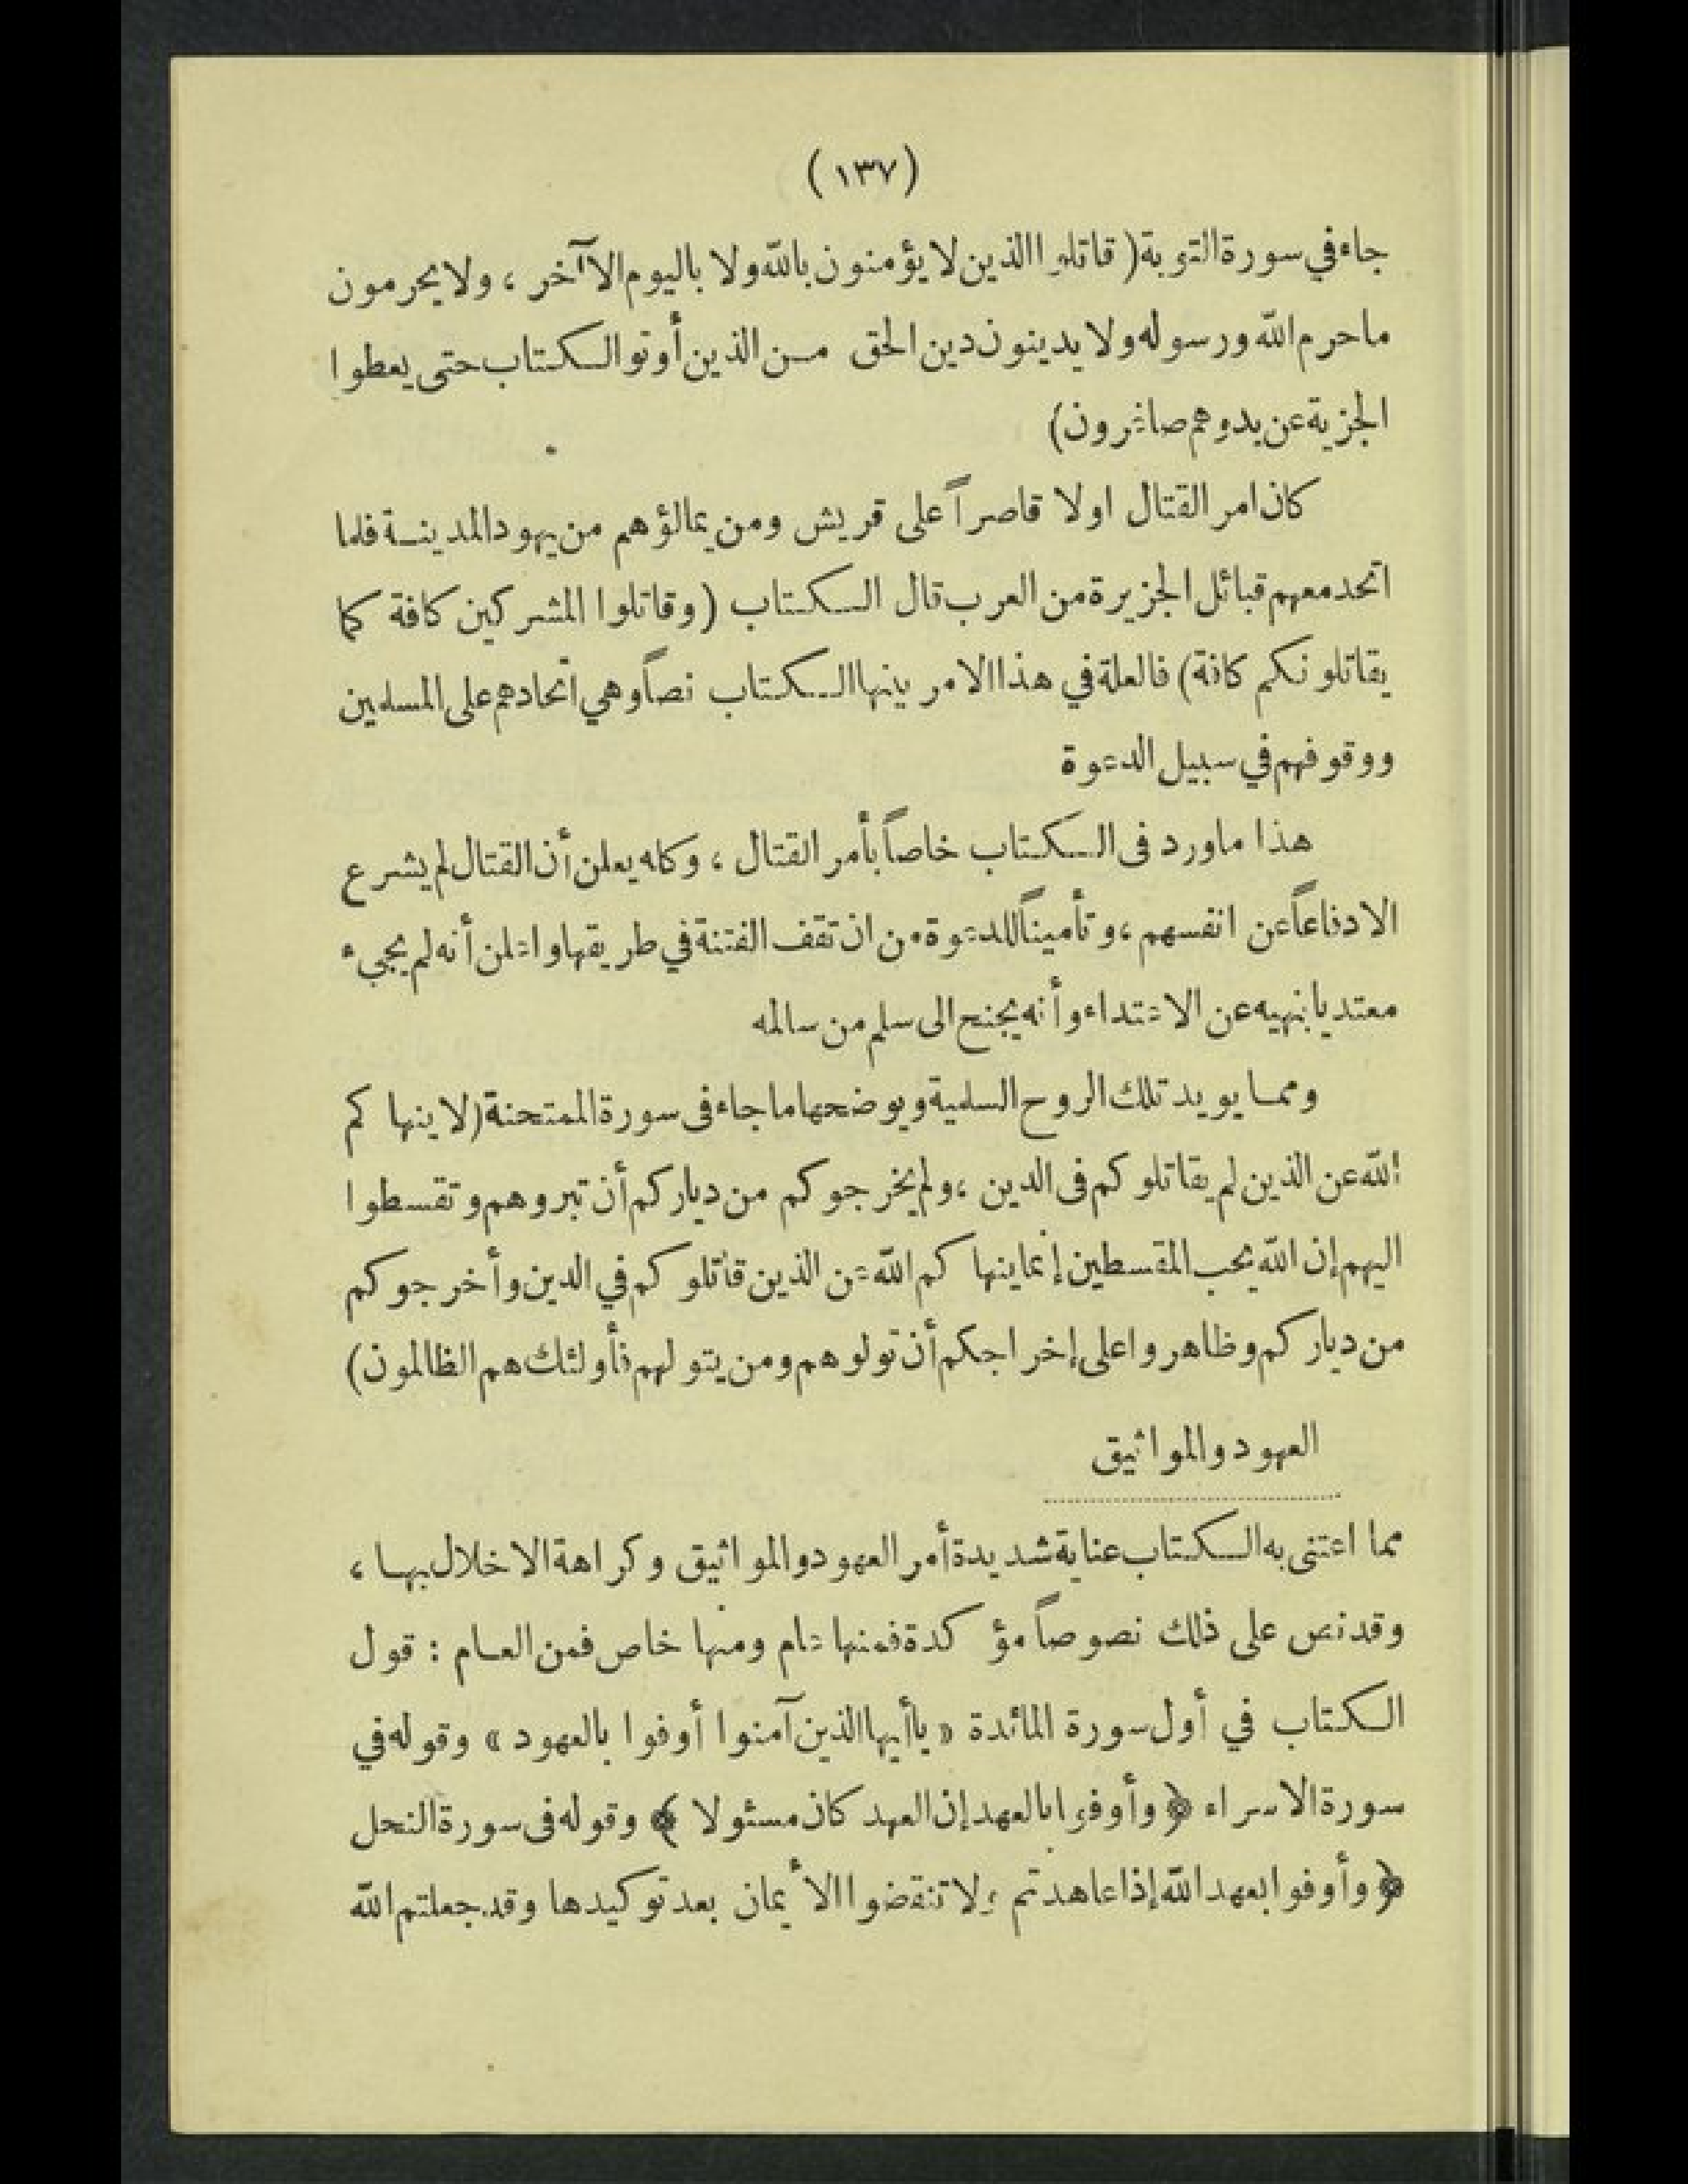 (١٣٧)
جاء في سورة التوبة (قاتلوا الذين لا يؤمنون بالله ولا باليوم الآخر ، ولا يحرمون
ما حرم الله ورسوله ولا يدينون دين الحق من الذين أوتو الكتاب حتى يعطوا
الجزية عن يد وهم صاغرون)
كان امر القتال اولا قاصراً على قريش ومن يمالؤهم من يهود المدينة فلما
اتحد معهم قبائل الجزيرة من العرب قال الكتاب (وقاتلوا المشركين كافة كما
يقاتلونكم كافة) فالعلة في هذا الامر بينها الكتاب نصاً وهي اتحادهم على المسلمين
ووقوفهم في سبيل الدعوة
هذا ما ورد فى الكتاب خاصاً بأمر القتال ، وكله يعلن أن القتال لم يشرع
الا دفاعاً عن انفسهم ، وتأميناً للدعوة من ان تقف الفتنة في طريقها واعلن أنه لم يجيء
معتديا بنهيه عن الاعتداء وأنه يجنح الى سلم من سالمه
ومما يويد تلك الروح السلمية ويوضحها ما جاء فى سورة الممتحنة (لا ينها كم
الله عن الذين لم يقاتلوكم فى الدين ، ولم يخرجوكم من دياركم أن تبروهم وتقسطوا
اليهم إن الله يحب المقسطين إنما ينها كم الله عن الذين قاتلوكم في الدين وأخرجوكم
من دياركم وظاهروا على إخراجكم أن تولوهم ومن يتولهم فأولئك هم الظالمون)
العهود والمواثيق
مما اعتنى به الكتاب عناية شديدة أمر العهود والمواثيق وكراهة الاخلال بها ،
وقد نص على ذلك نصوصاً مؤكدة فمنها عام ومنها خاص فمن العام : قول
الكتاب في أول سورة المائدة « ياأيها الذين آمنوا أوفوا بالعهود » وقوله في
سورة الاسراء ﴿ وأوفوا بالعهد إن العهد كان مسئولا ﴾ وقوله فى سورة النحل
﴿ وأوفوا بعهد الله إذا عاهدتم ولا تنقضوا الأيمان بعد توكيدها وقد جعلتم الله